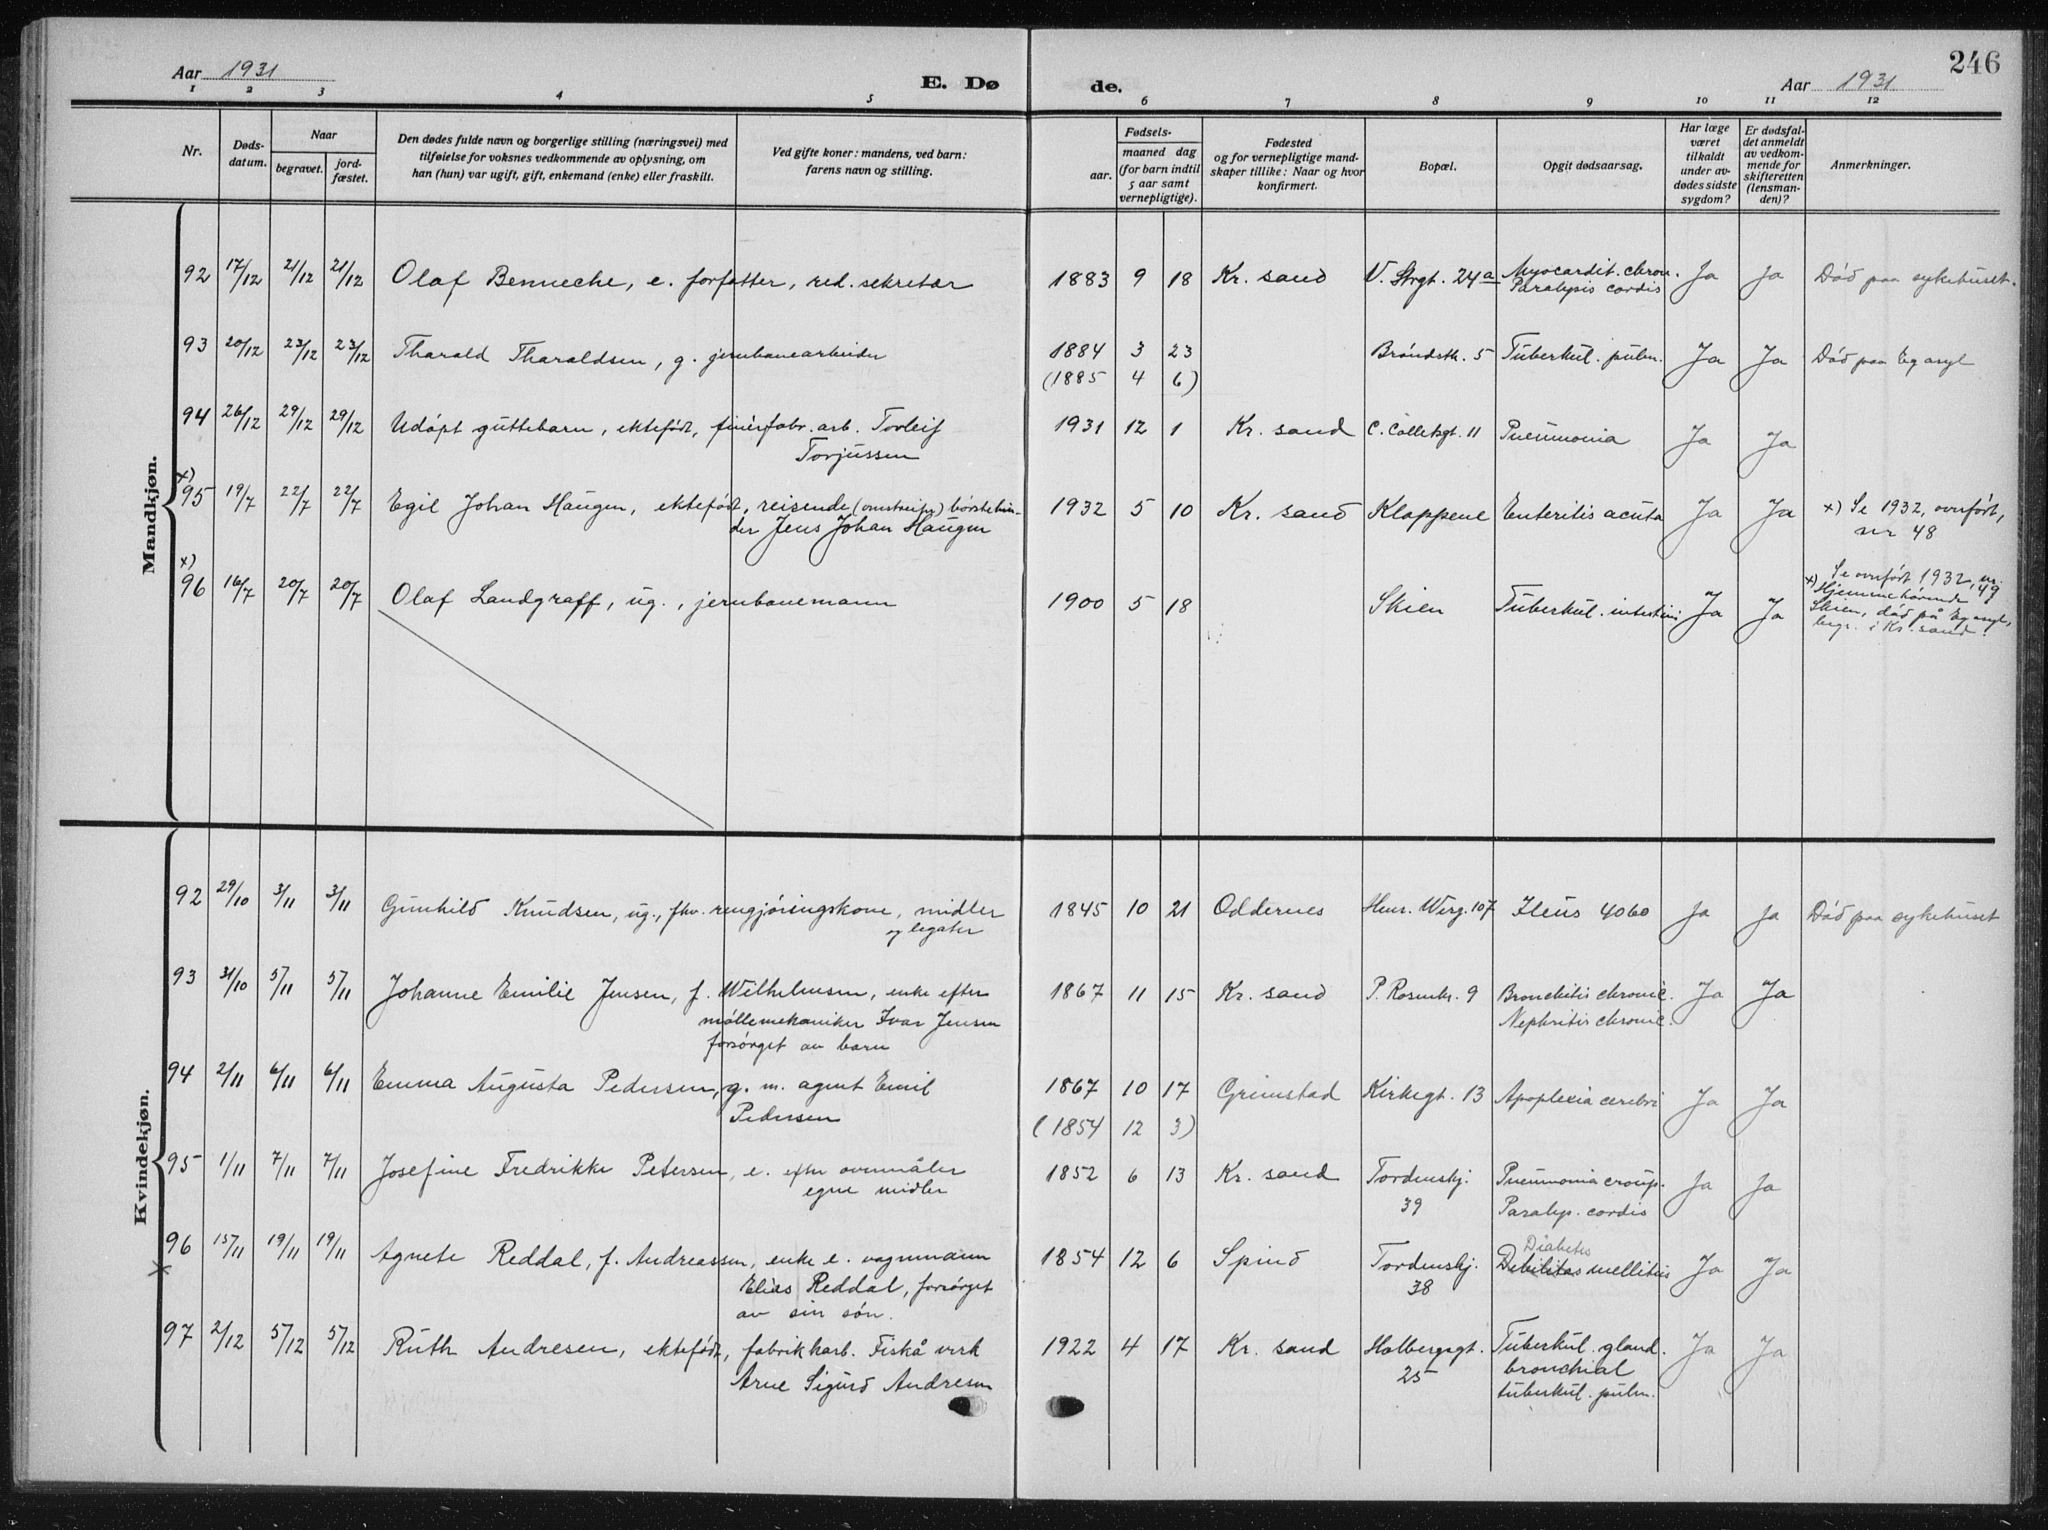 246
Aar 1931
E. Døde.
Aar 1931
1 2 3 4 5 6 7 8 9 10 11 12
Nr.
Dødsdatum.
Naar
begravet.
jordfæstet.
Den dødes fulde navn og borgerlige stilling (næringsvei) med
tilføielse for voksnes vedkommende av oplysning, om
han (hun) var ugift, gift, enkemand (enke) eller fraskilt.
Ved gifte koner: mandens, ved barn:
farens navn og stilling.
Fødsels-
aar.
maaned dag
(for barn indtil
5 aar samt
vernepligtige).
Fødested
og for vernepligtige mand-
skaper tillike: Naar og hvor
konfirmert.
Bopæl.
Opgit dødsaarsag.
Har læge
været
tilkaldt
under av-
dødes sidste
sygdom?
Er dødsfal-
det anmeldt
av vedkom-
mende for
skifteretten
(lensman-
den)?
Anmerkninger.
Mandkjøn.
92 17/12 21/12 21/12 Olaf Benneche, e. forfatter, red. sekretær 1883 9 18 Kr. sand V. Strgt. 24a Myocardit. chron. Ja Ja Död paa sykehuset.
Paralysis cordis
93 20/12 23/12 23/12 Tharald Tharaldsen, g. jernbanearbeider 1884 3 23 Bröndstr. 5 Tuberkul. pulm. Ja Ja Död paa Eg asyl
(1885 4 6)
94 26/12 29/12 29/12 Udöpt guttebarn, ektefödt, finérfabr. arb. Torleif 1931 12 1 Kr. sand C. Colletsgt. 11 Pneumonia Ja Ja
Torjussen
x)
95 19/7 22/7 22/7 Egil Johan Haugen, ektefödt, reisende (omstreifer) börstebin- 1932 5 10 Kr. sand Kloppene Enteritis acuta Ja Ja x) Se 1932, overfört,
der Jens Johan Haugen nr 48
x)
96 16/7 20/7 20/7 Olaf Landgraff, ug., jernbanemann 1900 5 18 Skien Tuberkul. intestini Ja Ja Se overfört 1932, nr. 49
x) Hjemmehörende
Skien, död på Eg asyl,
begr. i Kr. sand.
Kvindekjøn.
92 29/10 3/11 3/11 Gunhild Knudsen, ug., fhv. rengjöringskone, midler 1845 10 21 Oddernes Henr. Werg. 107 Ileus 4060 Ja Ja Död paa sykehuset
og legater
93 31/10 5/11 5/11 Johanne Emilie Jensen, f. Wilhelmsen, enke efter 1867 11 15 Kr. sand P. Rosenkr. 9 Bronchitis chronic. Ja Ja
möllemekaniker Ivar Jensen Nephritis chronic.
forsörget av barn
94 2/11 6/11 6/11 Emma Augusta Pedersen, g. m. agent Emil 1867 10 17 Grimstad Kirkegt. 13 Apoplexia cerebri Ja Ja
Pedersen (1854 12 3)
95 1/11 7/11 7/11 Josefine Fredrikke Petersen, e. efter ovenmåler 1852 6 13 Kr. sand Tordenskj. Pneumonia croup. Ja Ja
egne midler 39 Paralys. cordis
x 96 15/11 19/11 19/11 Agnete Reddal, f. Andreassen, enke e. vognmann 1854 12 6 Spind Tordenskj. Diabetes Debilitas mellitus Ja Ja
Elias Reddal, forsörget 38
av sin sön.
97 2/12 5/12 5/12 Ruth Andresen, ektefödt, fabrikkarb. Fiskå verk 1922 4 17 Kr. sand Holbergsgt. Tuberkul. gland. Ja Ja
Arne Sigurd Andresen 25 bronchial
tuberkul. pulm.